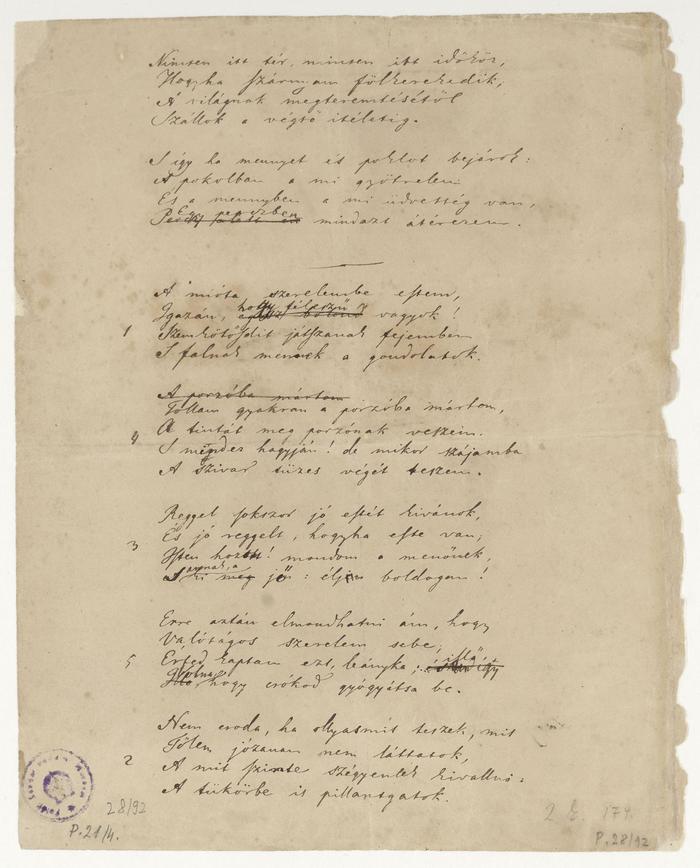 Nincsen itt tér, nincsen itt időkör,
Hogyha szárnyam fölkerekedik,
A világnak megteremtésétől
Szállok a végső itéletig.
S így ha mennyet és poklot bejárok:
A pokolban a mi gyötrelem
És a mennyben a mi üdvesség van,
Egy perczben
mindazt átérezem.
A mióta szerelembe estem,
hogy féleszű
Igazán, vagyok!
1
Szemkötősdit játszanak fejemben
S falnak mennek a gondolatok.
A porzóba mártom
Tollam gyakran a porzóba mártom,
A tintát meg porzónak veszem.
4
S mindez hagyján! de mikor szájamba
A szivar tüzes végét teszem.
Reggel sokszor jó estét kivánok,
És jó reggelt, hogyha este van;
3
Isten hozott! mondom a menőnek,
annak, a
S ki meg jön: éljen boldogan!
Erre aztán elmondhatni ám, hogy
Valóságos szerelem sebe;
5
Érted kaptam ezt, leányka; illő
volna
hogy csókod gyógyítsa be.
Nem csoda, ha ollyasmit teszek, mit
Tőlem józanan nem láttatok,
2
A mit szinte szégyenlek kivallni:
A tükörbe is pillantgatok.
28/92
P.21/4.
174.
P.28/92